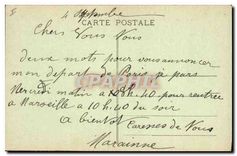 4 Septembre
CARTE POSTALE
Chers Vous Vous
deux mots pour vous annoncer
mon départ de Paris je pars
Mercredi matin a 8h 40 pour rentrée
a Marseille a 10h40 du soir
a bientot Caresses de Vous
Marainne